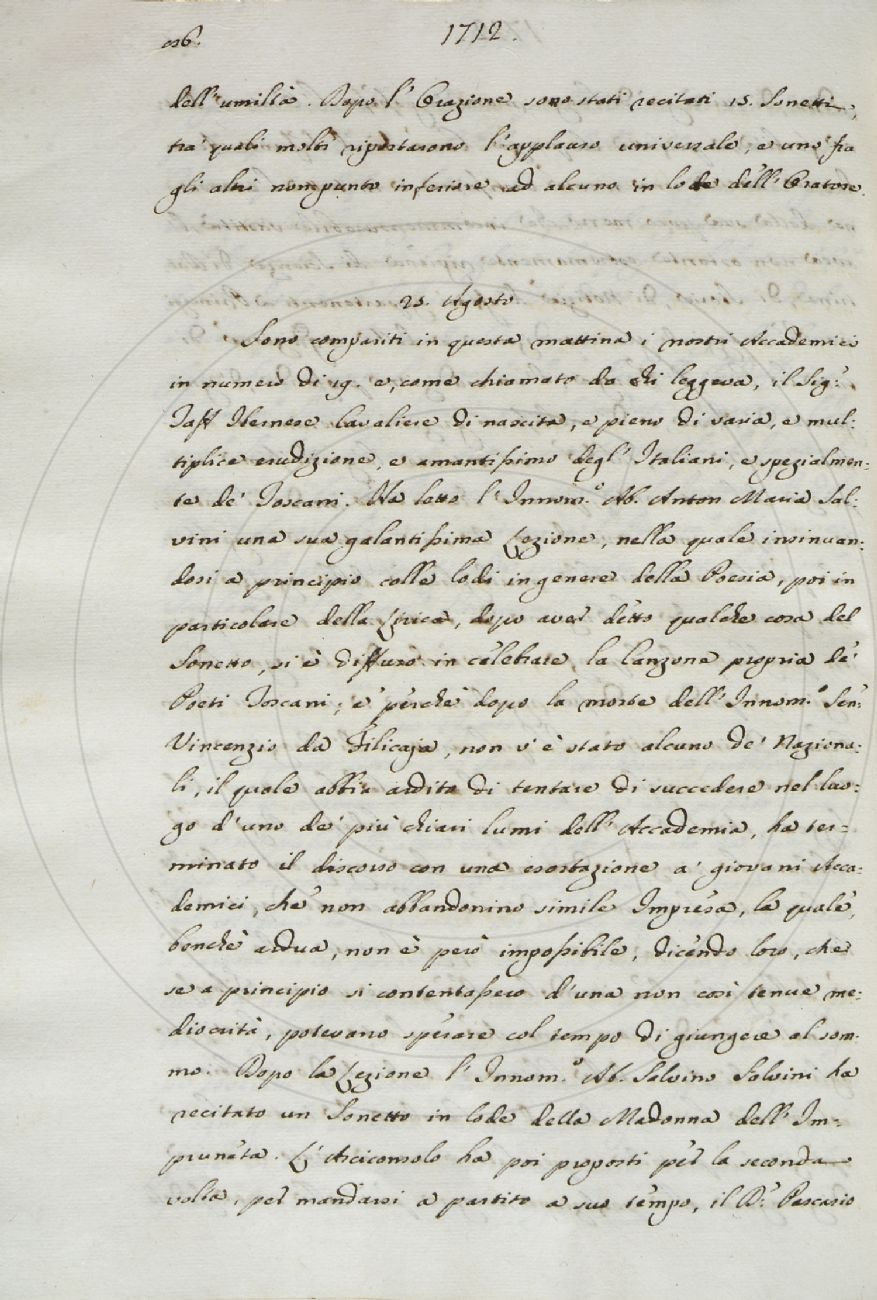 1712.
dell'umiltà. Dopo l'Orazione sono stati recitati 15. Sonetti,
tra' quali molti riportarono l'applauso universale, e uno fra
gli altri nompunto inferiore ad alcuno in lode dell'Oratore.
25. Agosto
Sono compariti in questa mattina i nostri Accademici
in numero di 19. e, come chiamato da chi leggeva, il Sig.r
Taff Ibernese Cavaliere di nascita, e pieno di varia, e mul:
tiplice erudizione, e amantissimo degl'Italiani, e spezialmen:
te de' Toscani. Ha letto l'Innom.o Ab. Anton Maria Sal:
vini una sua galantissima Lezione, nella quale insinuan:
dosi a principio colle lodi in genere della Poesia, poi in
particolare della Lirica, dopo aver detto qualche cosa del
Sonetto, si è diffuso in celebrare la Canzone propria de'
Poeti Toscani; e perchè dopo la morte dell'Innom.o Sen:
Vincenzio da Filicaja, non v'è stato alcuno de' Naziona:
li, il quale abbia ardito di tentare di succedere nel luo:
go d'uno de' più chiari lumi dell'Accademia, ha ter=
minato il discorso con una esortazione a' giovani Acca:
demici, che non abbandonino simile Impresa, la quale,
benchè ardua, non è però impossibile, dicendo loro, che
se a principio si contentassero d'una non così tenue me:
diocrità, potevano sperare col tempo di giungere al som:
mo. Dopo la Lezione l'Innom.o Ab. Salvino Salvini ha
recitato un Sonetto in lode della Madonna dell'Im:
pruneta. L'Arciconsolo ha poi proposti per la seconda
volta, per mandarsi a partito a suo tempo, il D.r Pascasio